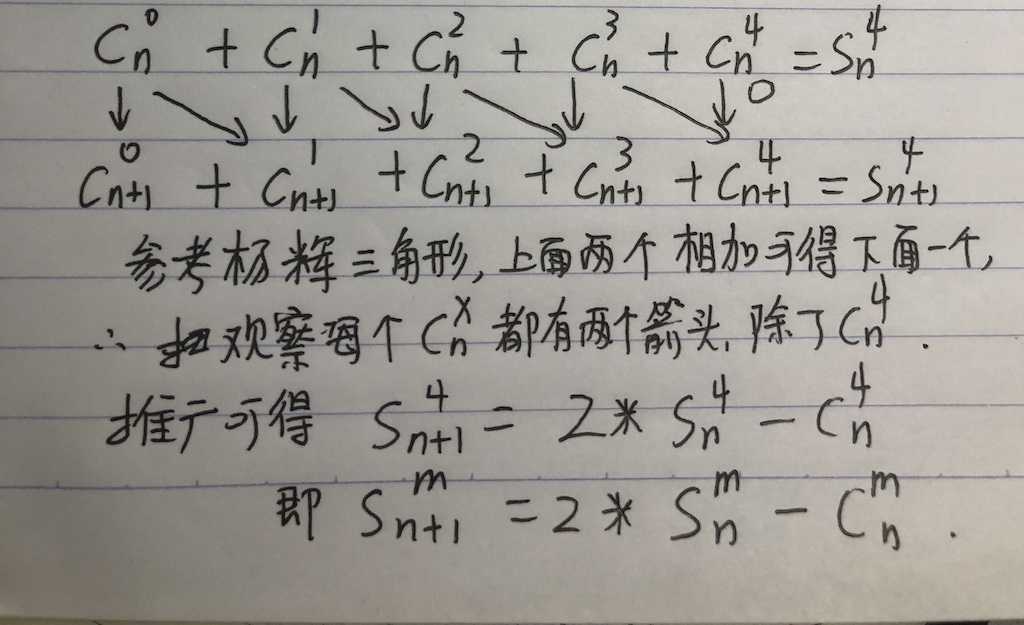 C_n^0 + C_n^1 + C_n^2 + C_n^3 + C_n^4 = S_n^4
↓ ↘ ↓ ↘ ↓ ↘ ↓ ↘ ↓ 0
C_{n+1}^0 + C_{n+1}^1 + C_{n+1}^2 + C_{n+1}^3 + C_{n+1}^4 = S_{n+1}^4
参考杨辉三角形,上面两个相加可得下面一个,
∴ 观察每个 C_n^x 都有两个箭头,除了 C_n^4 .
推广可得 S_{n+1}^4 = 2 * S_n^4 - C_n^4
即 S_{n+1}^m = 2 * S_n^m - C_n^m .